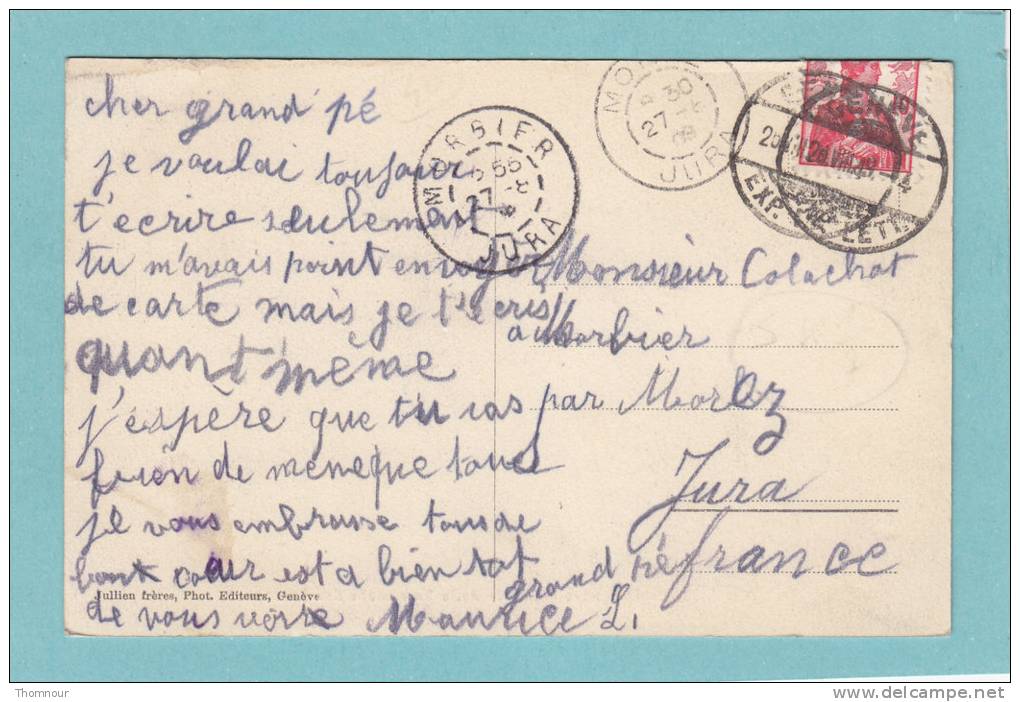 cher grand pé
je voulai toujour
t'écrire seulement
tu m'avais point envoyez
de carte mais je t'écris
quant même
j'espère que tu vas
bien de mêmeque tous
je vous embrasse tous de
bon cœur est a bien tot
grand pé
de vous voire Maurice L.
Monsieur Colachot
a Morbier
par Morez
Jura
france
MORBIER
JURA
JURA
EXP. LETT.
Jullien frères, Phot. Editeurs, Genève
Thomnour
www.delcampe.net